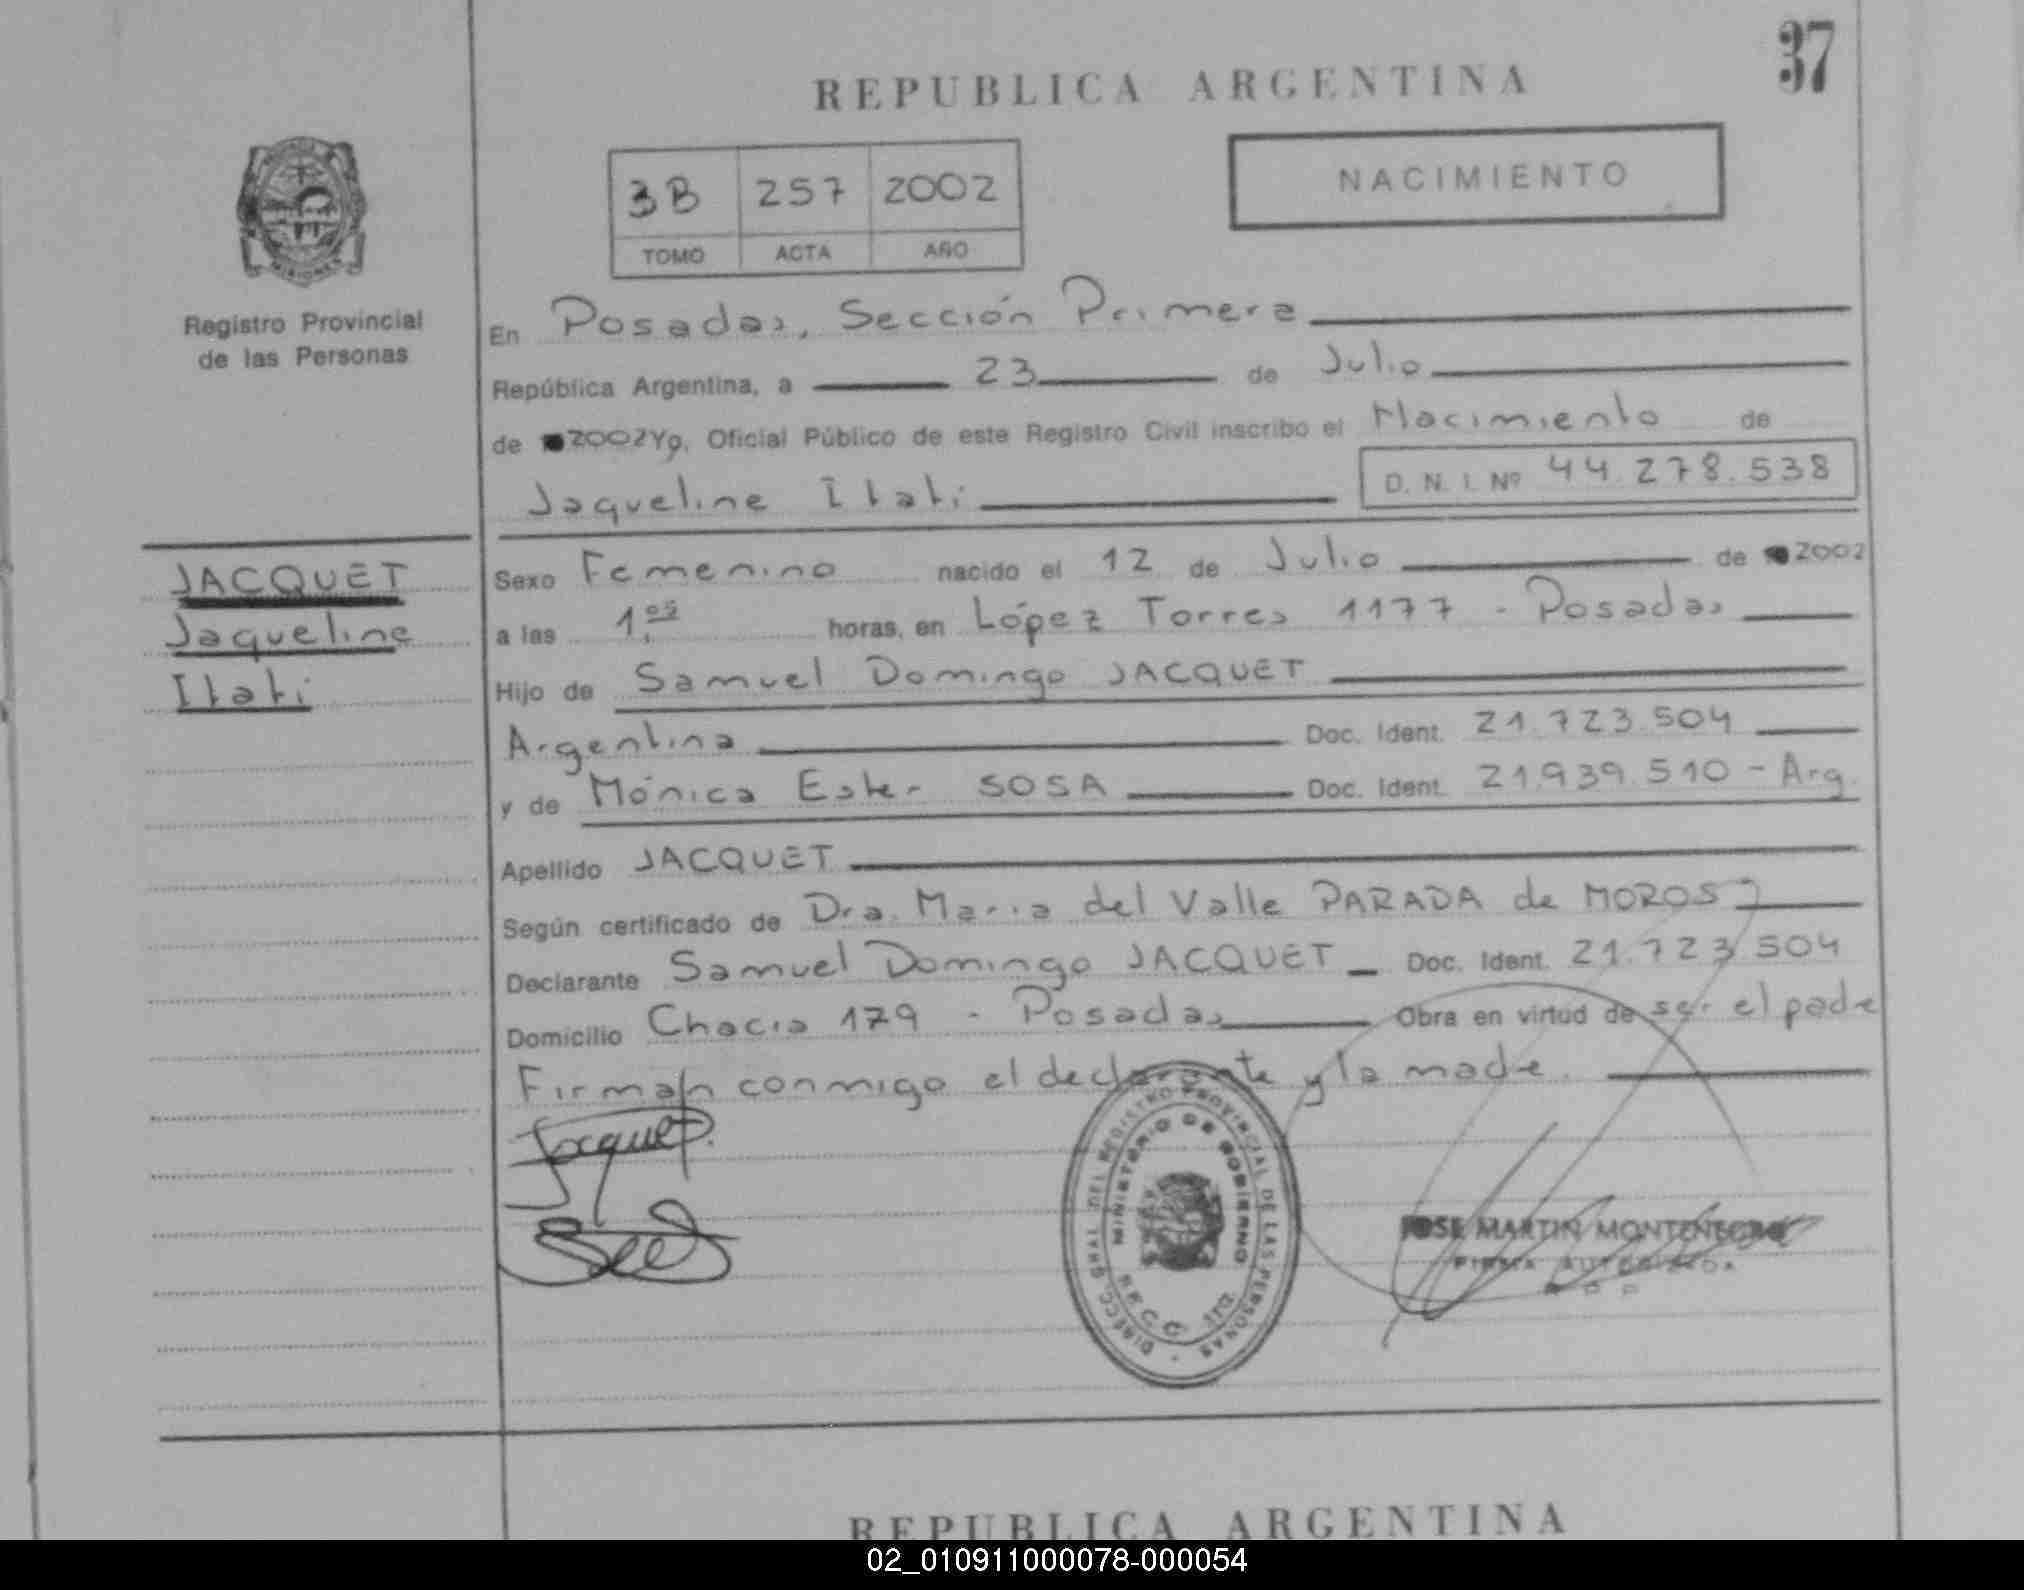 37
REPUBLICA ARGENTINA
NACIMIENTO
3B 257 2002
TOMO ACTA AÑO
MISIONES
Registro Provincial
de las Personas
En Posadas, Sección Primera
República Argentina, a 23 de Julio
de 2002 Yo, Oficial Público de este Registro Civil inscribo el Nacimiento de
Jaqueline Itatí D. N. I. Nº 44.278.538
JACQUET
Jaqueline
Itatí
Sexo Femenino nacido el 12 de Julio de 2002
a las 1.05 horas, en López Torres 1177 - Posadas
Hijo de Samuel Domingo JACQUET
Argentina Doc. Ident. 21.723.504
y de Mónica Ester SOSA Doc. Ident. 21.939.510 - Arg.
Apellido JACQUET
Según certificado de Dra. Maria del Valle PARADA de MOROS
Declarante Samuel Domingo JACQUET Doc. Ident. 21.723.504
Domicilio Chacra 179 - Posadas Obra en virtud de ser el padre
Firman conmigo el declarante y la madre.
Jacquet
DIRECC. GRAL. DEL REGISTRO PROVINCIAL DE LAS PERSONAS
MINISTERIO DE GOBIERNO
JOSE MARTIN MONTENEGRO
FIRMA AUTORIZADA
REPUBLICA ARGENTINA
02_010911000078-000054